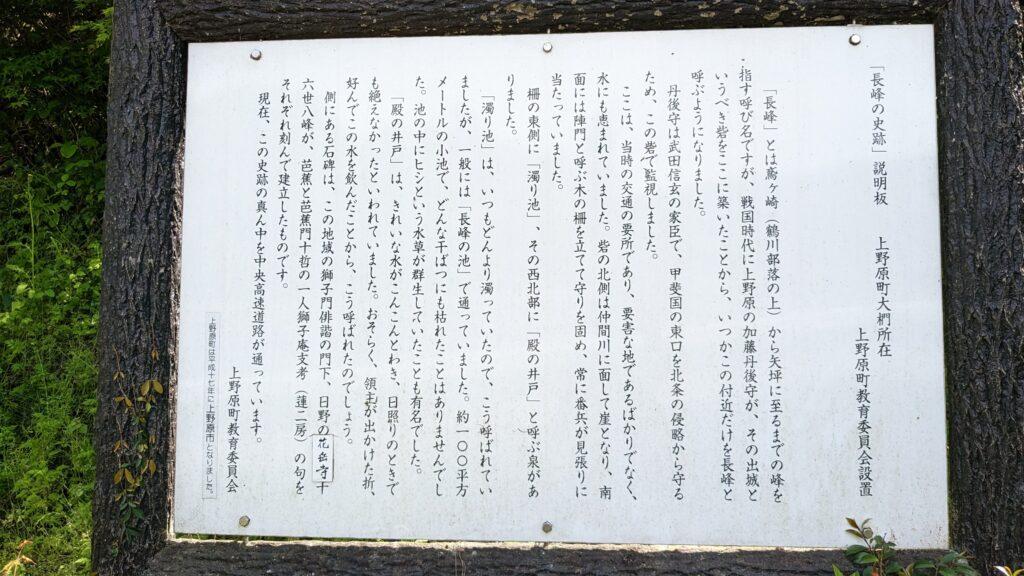 「長峰の史跡」説明板
上野原町大椚所在
上野原町教育委員会設置
「長峰」とは鳶ヶ崎（鶴川部落の上）から矢坪に至るまでの峰を
指す呼び名ですが、戦国時代に上野原の加藤丹後守が、その出城と
いうべき砦をここに築いたことから、いつかこの付近だけを長峰と
呼ぶようになりました。
丹後守は武田信玄の家臣で、甲斐国の東口を北条の侵略から守る
ため、この砦で監視しました。
ここは、当時の交通の要所であり、要害な地であるばかりでなく、
水にも恵まれていました。砦の北側は仲間川に面して崖となり、南
面には陣門と呼ぶ木の柵を立てて守りを固め、常に番兵が見張りに
当たっていました。
柵の東側に「濁り池」、その西北部に「殿の井戸」と呼ぶ泉があ
りました。
「濁り池」は、いつもどんより濁っていたので、こう呼ばれてい
ましたが、一般には「長峰の池」で通っていました。約一〇〇平方
メートルの小池で、どんな干ばつにも枯れたことはありませんでし
た。池の中にヒシという水草が群生していたことも有名でした。
「殿の井戸」は、きれいな水がこんこんとわき、日照りのときで
も絶えなかったといわれていました。おそらく、領主が出かけた折、
好んでこの水を飲んだことから、こう呼ばれたのでしょう。
側にある石碑は、この地域の獅子門俳諧の門下、日野の花岳寺十
六世八峰が、芭蕉と芭蕉門十哲の一人獅子庵支考（蓮二房）の句を
それぞれ刻んで建立したものです。
現在、この史跡の真ん中を中央高速道路が通っています。
上野原町教育委員会
上野原町は平成十七年に上野原市となりました。